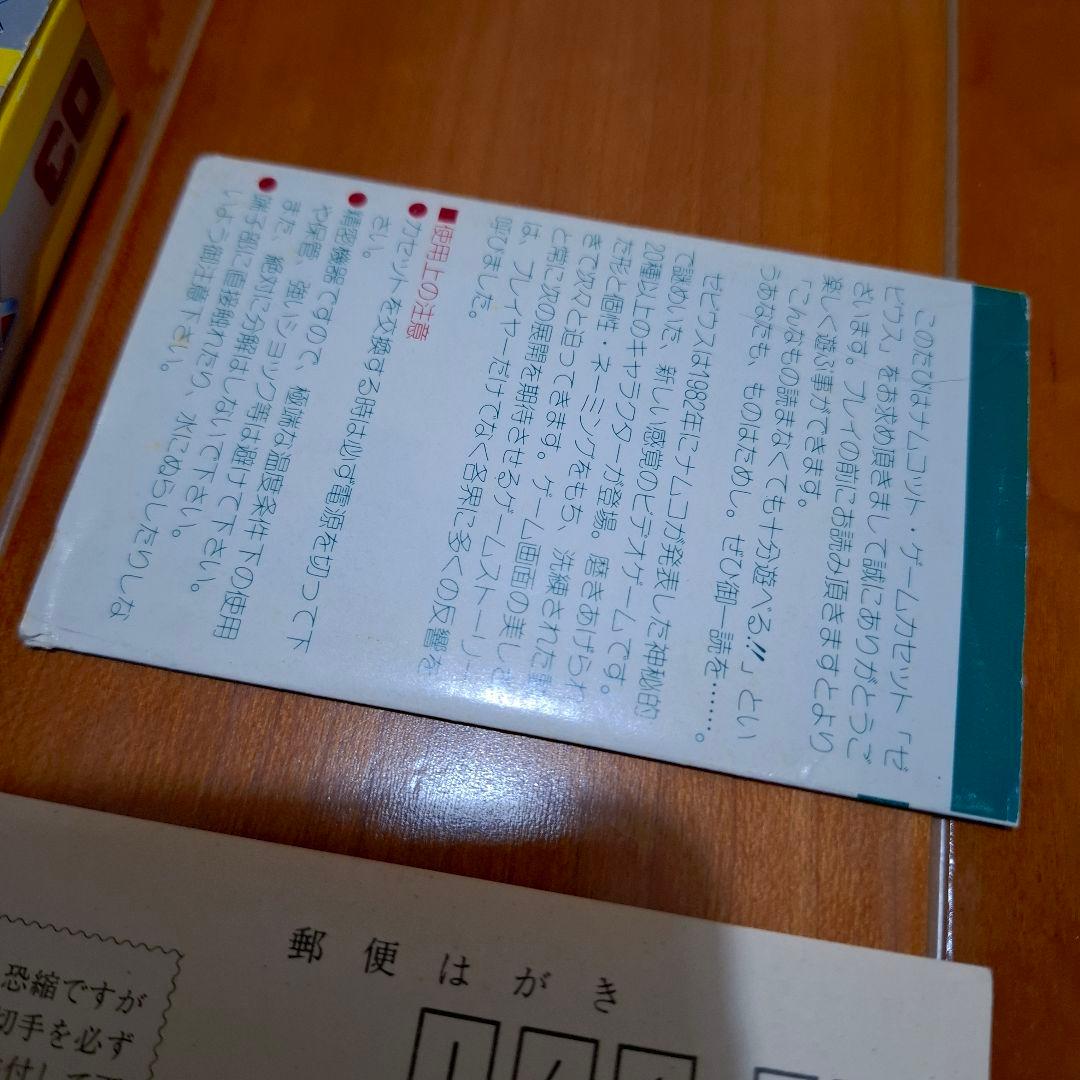 このたびはナムコット・ゲームカセット「ゼ
ビウス」をお求め頂きまして誠にありがとうご
ざいます。プレイの前にお読み頂きますとより
楽しく遊ぶ事ができます。
「こんなもの読まなくても十分遊べる!!」とい
うあなたも、ものはためし。ぜひ御一読を……。
ゼビウスは1982年にナムコが発表した神秘的
で謎めいた、新しい感覚のビデオゲームです。
20種以上のキャラクターが登場。磨きあげられ
た形と個性・ネーミングをもち、洗練された
きて次々と迫ってきます。ゲーム画面の美しさ
と常に次の展開を期待させるゲームストーリー
は、プレイヤーだけでなく各界に多くの反響を
呼びました。
■使用上の注意
●カセットを交換する時は必ず電源を切って下
さい。
●精密機器ですので、極端な温度条件下の使用
や保管、強いショック等は避けて下さい。
また、絶対に分解はしないで下さい。
●端子部に直接触れたり、水にぬらしたりしな
いよう御注意下さい。
郵便はがき
恐縮ですが
切手を必ず